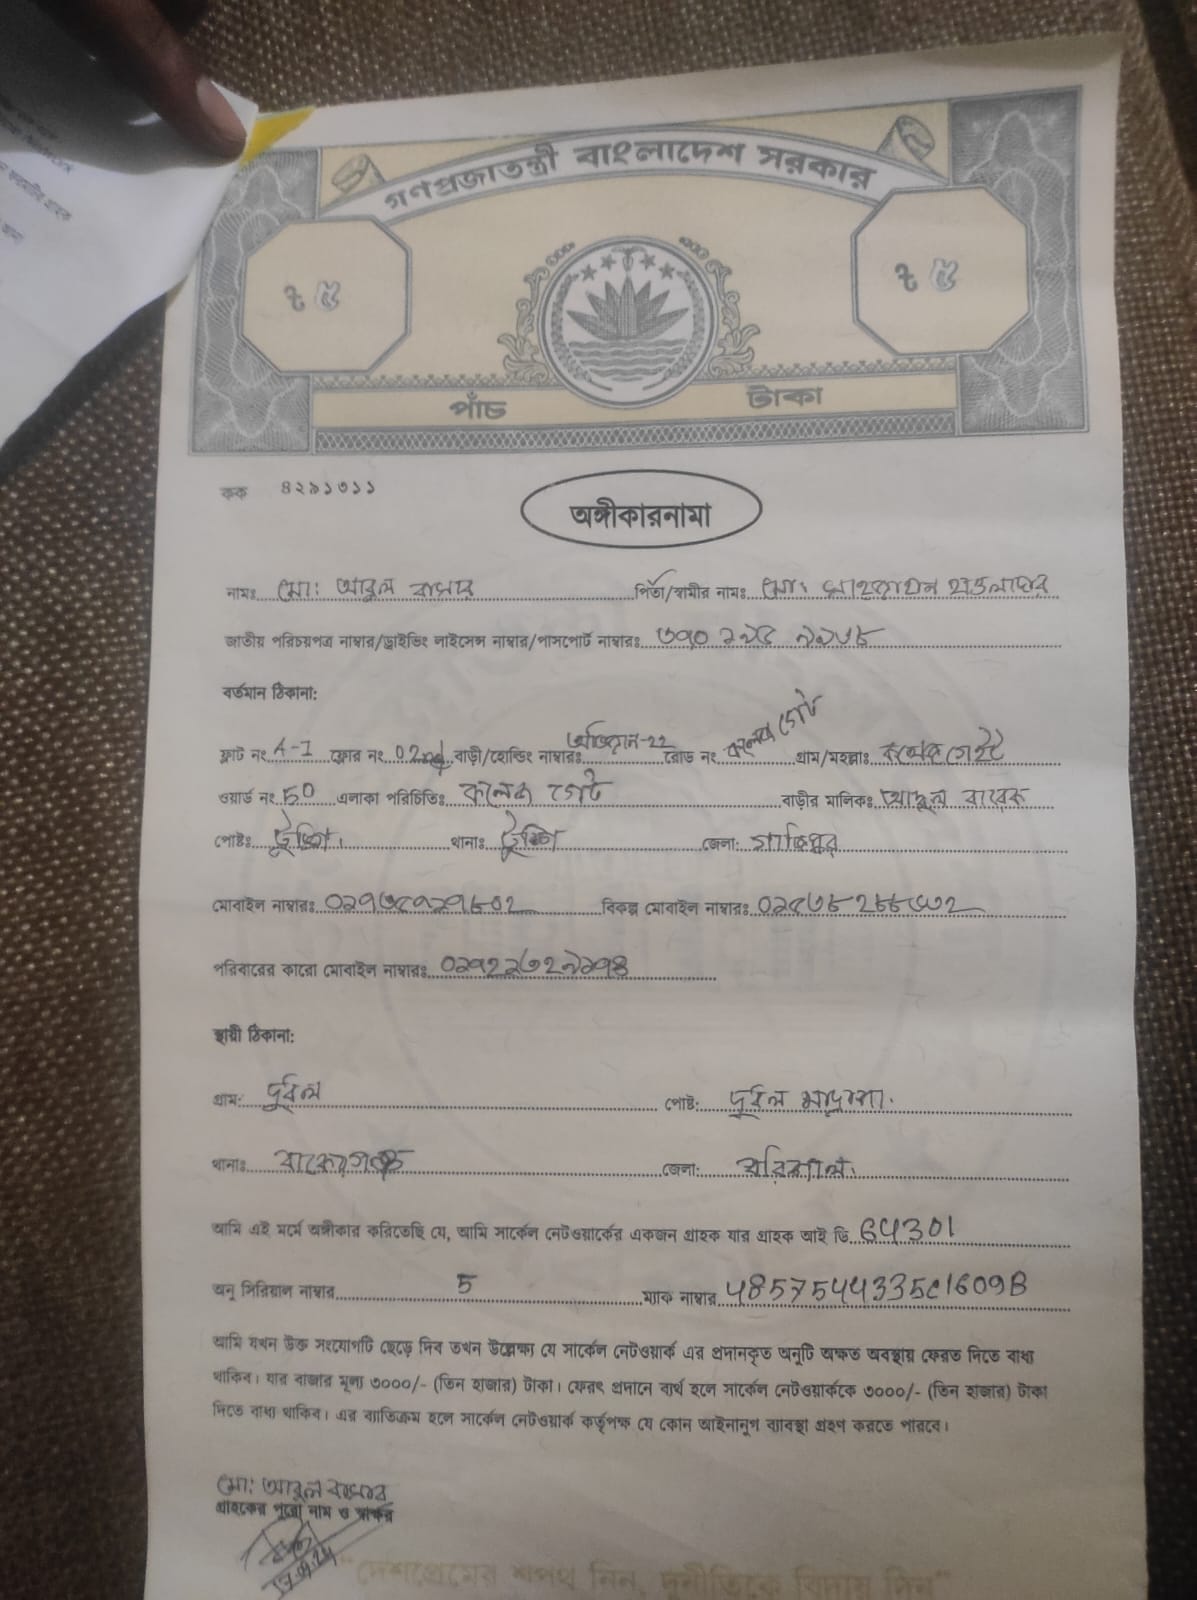 গণপ্রজাতন্ত্রী বাংলাদেশ সরকার
৳ ৫ ৳ ৫
পাঁচ টাকা
কক ৪২৯১৩১১
অঙ্গীকারনামা
নামঃ মো: আবুল বাসার পিতা/স্বামীর নামঃ মো: হাওলাদার
জাতীয় পরিচয়পত্র নাম্বার/ড্রাইভিং লাইসেন্স নাম্বার/পাসপোর্ট নাম্বারঃ
বর্তমান ঠিকানা:
ফ্লাট নং A-1 ফ্লোর নং 02nd বাড়ী/হোল্ডিং নাম্বারঃ রোড নং কলেজ গেট গ্রাম/মহল্লাঃ কলেজ গেইট
ওয়ার্ড নং 50 এলাকা পরিচিতিঃ কলেজ গেট বাড়ীর মালিকঃ আব্দুল বারেক
পোষ্টঃ টঙ্গি। থানাঃ টঙ্গি জেলা: গাজিপুর
মোবাইল নাম্বারঃ বিকল্প মোবাইল নাম্বারঃ
পরিবারের কারো মোবাইল নাম্বারঃ
স্থায়ী ঠিকানা:
গ্রাম: দুধল পোষ্ট: দুধল মাদ্রাসা.
থানাঃ বাকেরগঞ্জ জেলা: বরিশাল.
আমি এই মর্মে অঙ্গীকার করিতেছি যে, আমি সার্কেল নেটওয়ার্কের একজন গ্রাহক যার গ্রাহক আই ডি 64301
অনু সিরিয়াল নাম্বার 5 ম্যাক নাম্বার 4857544335C1609B
আমি যখন উক্ত সংযোগটি ছেড়ে দিব তখন উল্লেক্ষ্য যে সার্কেল নেটওয়ার্ক এর প্রদানকৃত অনুটি অক্ষত অবস্থায় ফেরত দিতে বাধ্য
থাকিব। যার বাজার মূল্য ৩০০০/- (তিন হাজার) টাকা। ফেরৎ প্রদানে ব্যর্থ হলে সার্কেল নেটওয়ার্ককে ৩০০০/- (তিন হাজার) টাকা
দিতে বাধ্য থাকিব। এর ব্যতিক্রম হলে সার্কেল নেটওয়ার্ক কর্তৃপক্ষ যে কোন আইনানুগ ব্যাবস্থা গ্রহণ করতে পারবে।
মো: আবুল বাসার
গ্রাহকের পুরো নাম ও স্বাক্ষর
“দেশপ্রেমের শপথ নিন, দুর্নীতিকে বিদায় দিন”